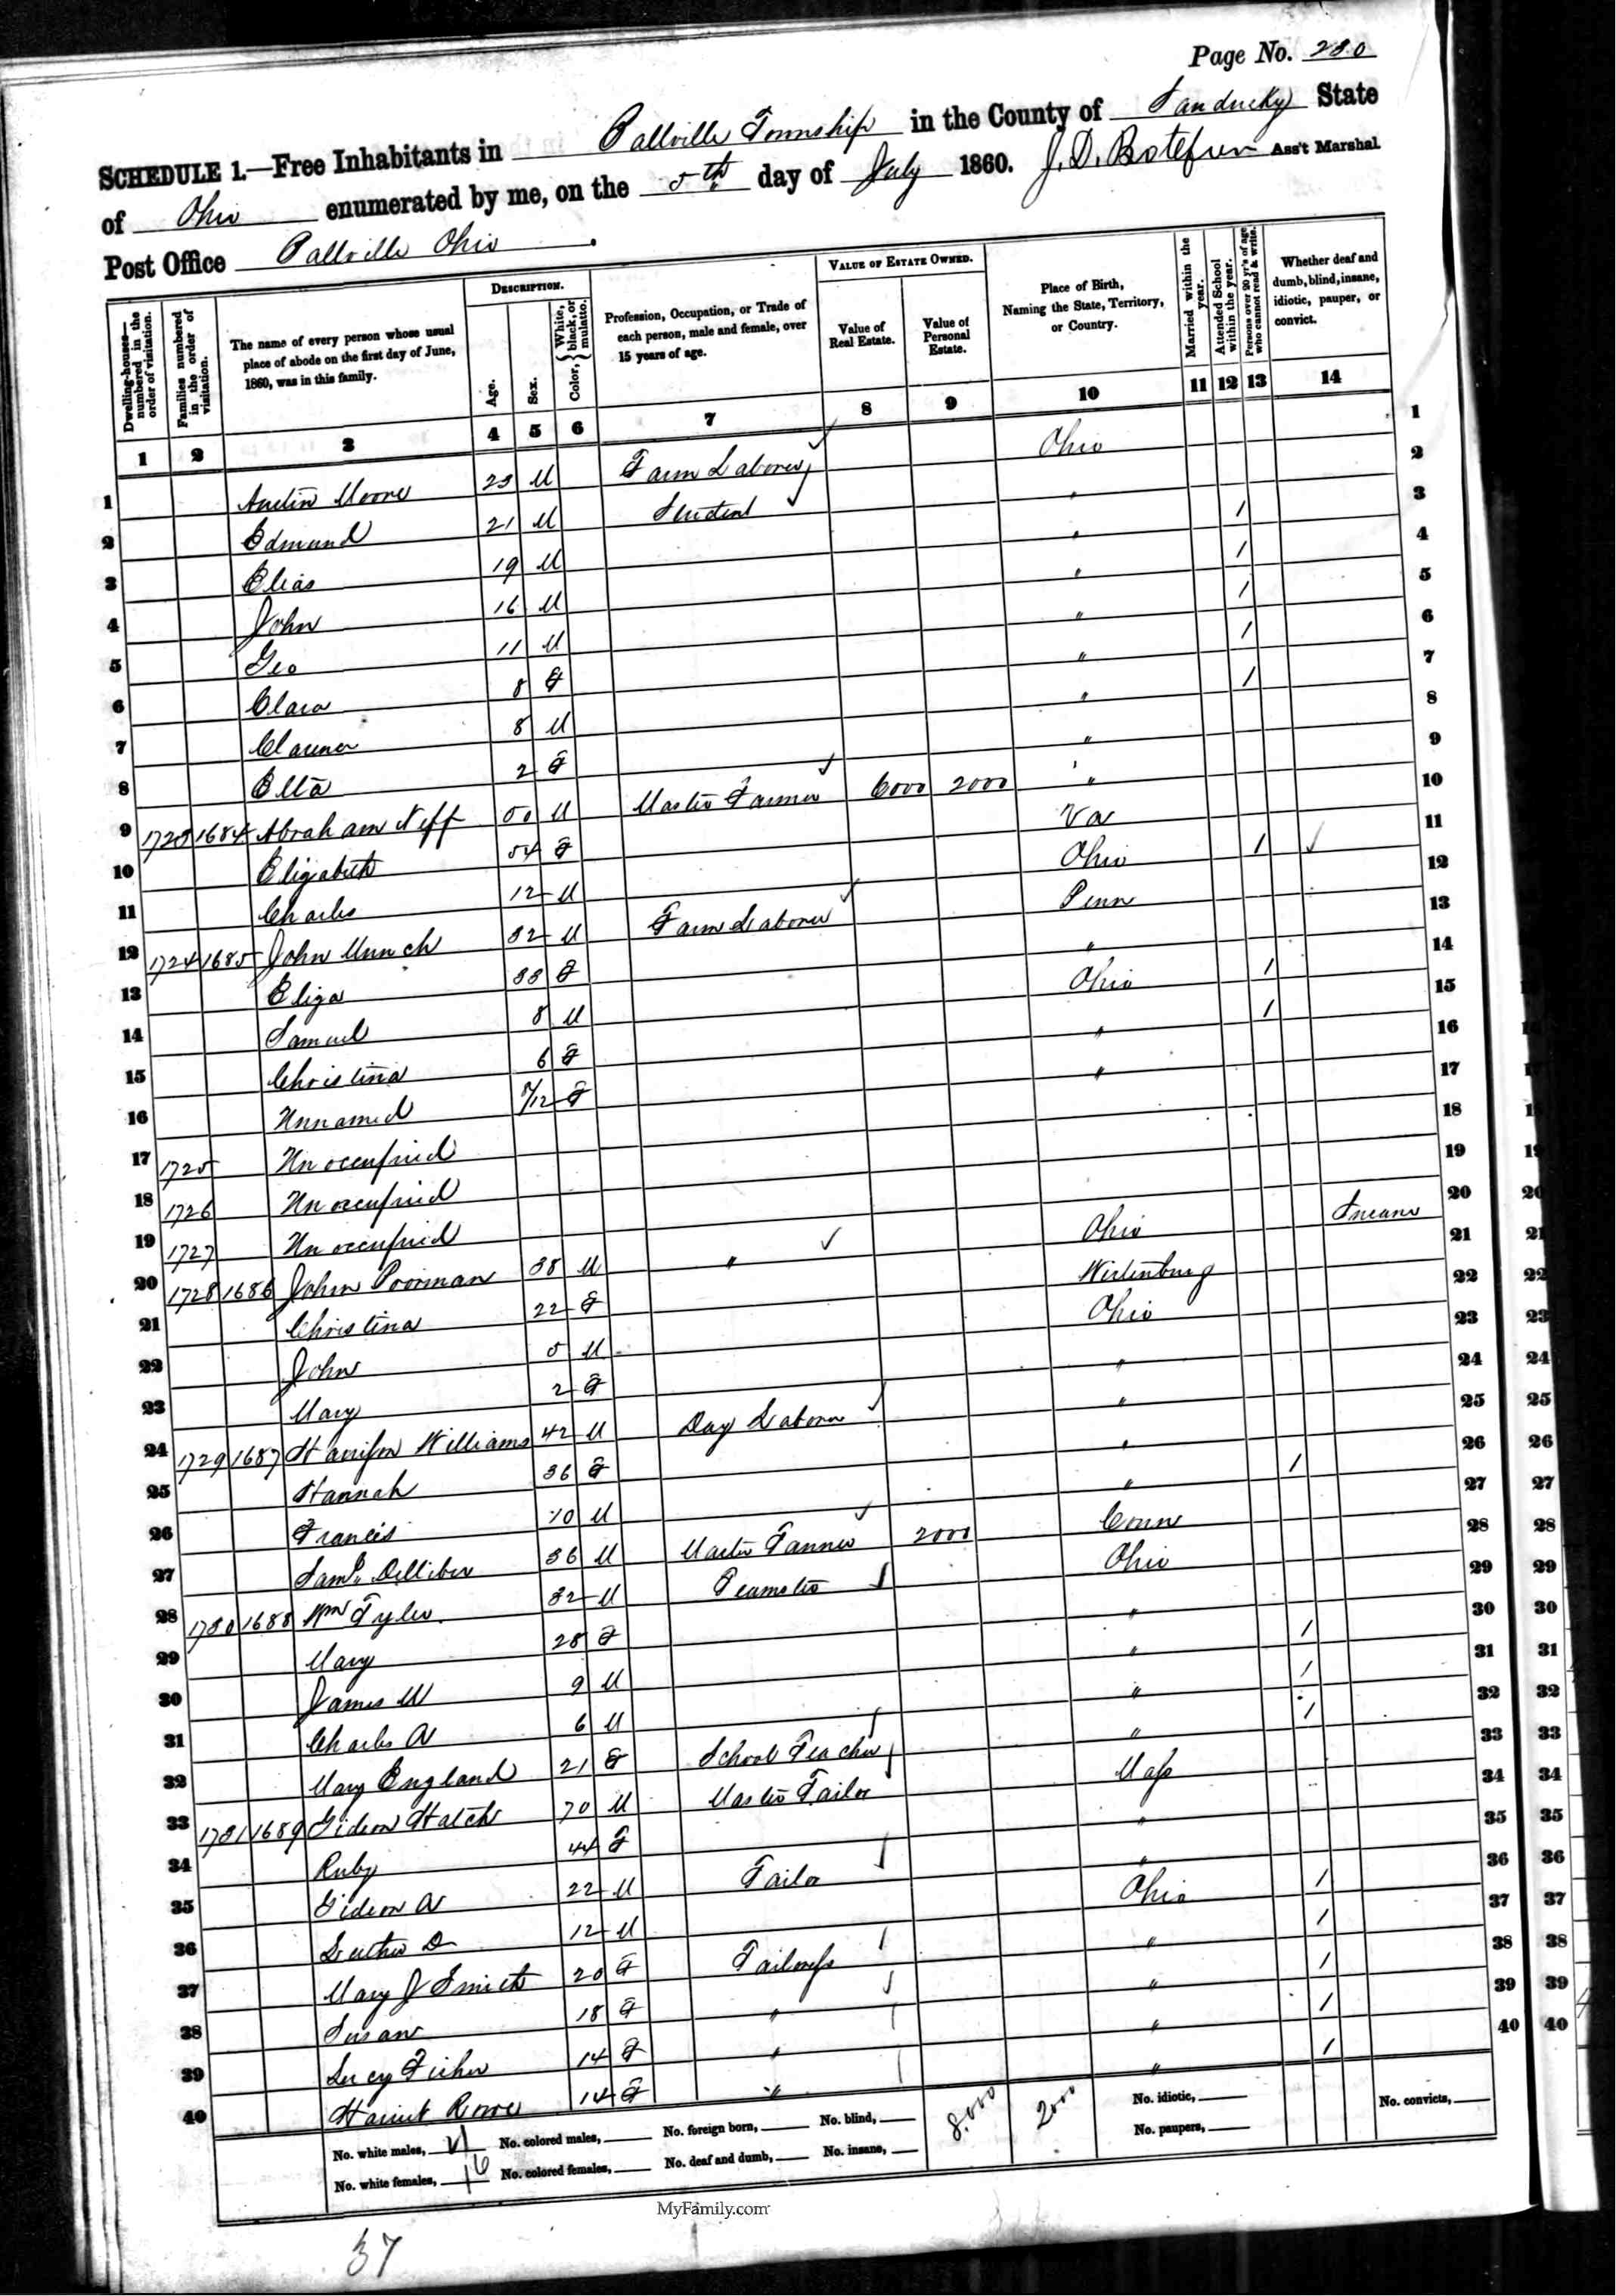 Page No. 280
SCHEDULE 1.—Free Inhabitants in Ballville Township in the County of Sandusky State
of Ohio enumerated by me, on the 5th day of July 1860. J. D. Botefur Ass't Marshal.
Post Office Ballville Ohio
Dwelling-houses—numbered in the order of visitation.
Families numbered in the order of visitation.
The name of every person whose usual place of abode on the first day of June, 1860, was in this family.
DESCRIPTION.
Age.
Sex.
Color, { White, black, or mulatto.
Profession, Occupation, or Trade of each person, male and female, over 15 years of age.
VALUE OF ESTATE OWNED.
Value of Real Estate.
Value of Personal Estate.
Place of Birth, Naming the State, Territory, or Country.
Married within the year.
Attended School within the year.
Persons over 20 yr's of age who cannot read & write.
Whether deaf and dumb, blind, insane, idiotic, pauper, or convict.
1 2 3 4 5 6 7 8 9 10 11 12 13 14
1 Austin Moore 23 M Farm Laborer Ohio 1
2 Edmund 21 M Student " 1 2
3 Elias 19 M " 1 3
4 John 16 M " 1 4
5 Geo 11 M " 1 5
6 Clara 8 F " 1 6
7 8 M " 7
8 Etta 2 F " 8
9 1723 1684 Abraham Neff 50 M Master Farmer 6000 2000 " 9
10 Elizabeth 54 F Va 10
11 Charles 12 M Ohio 1 11
12 1724 1685 John Munch 32 M Farm Laborer Penn 12
13 Eliza 33 F " 13
14 Samuel 8 M Ohio 1 14
15 Christina 6 F " 1 15
16 Unnamed /12 F " 16
17 1725 Unoccupied 17
18 1726 Unoccupied 18
19 1727 Unoccupied 19
20 1728 1686 John Poorman 38 M " Ohio Insane 20
21 Christina 22 F Wirtenburg 21
22 John 5 M Ohio 22
23 Mary 2 F " 23
24 1729 1687 Harrison Williams 42 M Day Laborer " 24
25 Hannah 36 F " 25
26 Francis 10 M " 1 26
27 Saml Dilliber 36 M Master Tanner 2000 Conn 27
28 1730 1688 Wm Tyler 32 M Teamster Ohio 28
29 Mary 28 F " 29
30 James M 9 M " 1 30
31 Charles A 6 M " 1 31
32 Mary England 21 F School Teacher " 1 32
33 1731 1689 Gideon Hatch 70 M Master Tailor Mass 33
34 Ruby 44 F " 34
35 Gideon A 22 M Tailor " 35
36 Luther D 12 M Ohio 1 36
37 Mary J Smith 20 F Tailoress " 1 37
38 Susan 18 F " " 1 38
39 Lucy Fisher 14 F " " 1 39
40 Harriet Rowe 14 F " " 1 40
No. white males, No. colored males, No. foreign born, No. blind, 8.000 2000 No. idiotic, No. convicts,
No. white females, 16 No. colored females, No. deaf and dumb, No. insane, No. paupers,
MyFamily.com
37